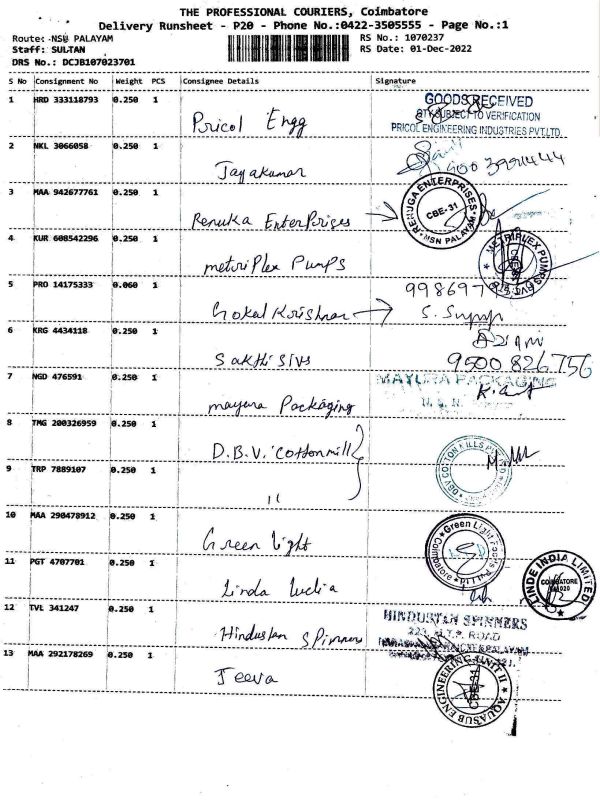 THE PROFESSIONAL COURIERS, Coimbatore
Delivery Runsheet - P20 - Phone No.:0422-3505555 - Page No.:1
Route:-NSN PALAYAM
RS No.: 1070237
Staff: SULTAN
RS Date: 01-Dec-2022
DRS No.: DCJB107023701
S No Consignment No Weight PCS Consignee Details Signature
1 HRD 333118793 0.250 1 Pricol Engg
GOODS RECEIVED
QTY.SUBJECT TO VERIFICATION
PRICOL ENGINEERING INDUSTRIES PVT.LTD.
2 NKL 3066058 0.250 1 Jayakumar
3 MAA 942677761 0.250 1 Renuka Enterprises
RENUGA ENTERPRISES
CBE-31
NSN PALAYAM
4 KUR 608542296 0.250 1 metriplex Pumps
METRIPLEX PUMPS
5 PRO 14175333 0.060 1 Gokal Krishnan
998697
6 KRG 4434118 0.250 1 Sakthi Sivs
9500 826 756
7 NGD 476591 0.250 1 mayura Packaging
MAYURA PACKAGING
8 TMG 200326959 0.250 1 D.B.V. Cottonmill
DBV COTTON MILLS
9 TRP 7889107 0.250 1 "
10 MAA 290478912 0.250 1 Green light
Green Light Foods
Coimbatore
11 PGT 4707701 0.250 1 Linda India
LINDE INDIA LIMITED
COIMBATORE
12 TVL 341247 0.250 1 Hindustan Spinners
HINDUSTAN SPINNERS
ROAD
13 MAA 292178269 0.250 1 Jeeva
AQUASUB ENGINEERING UNIT II
CBE-31